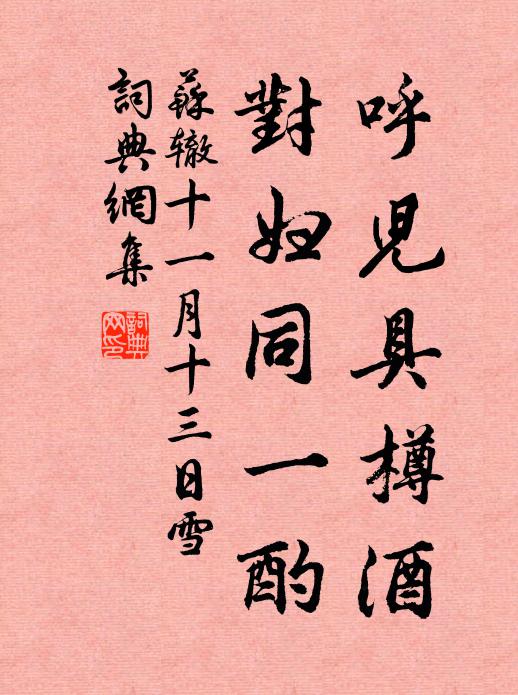 呼児具樽酒
對妇同一酌
蘇辙十一月十三日雪
詞典網集
詞典
网印